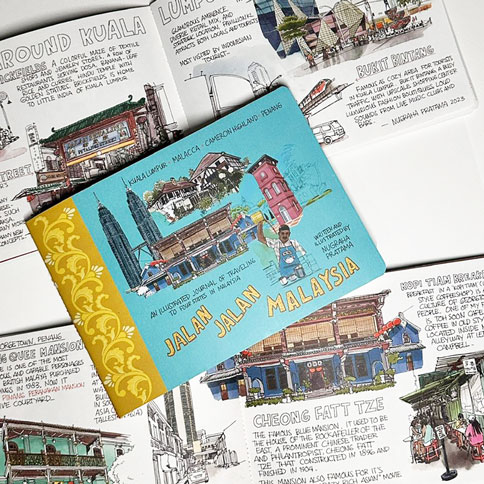 AROUND KUALA
LUMPU
BRICKFIELDS A COLORFUL MAZE OF TEXTILE
SHOPS AND JEWELRY STORES. A ROW OF
RESTAURANTS SERVING LOCAL BANANA-LEAF
RICE AND CURRIES. HINDU TEMPLE WITH
GOLDEN STATUES, BRICKFIELDS IS HOME
TO LITTLE INDIA OF KUALA LUMPUR.
GLAMOROUS AMBIANCE,
DIVERSE RETAIL MIX, AND
STRATEGIC LOCATION,
ATTRACTS BOTH LOCALS AND TOURISTS
MOST VISITED BY INDONESIAN
TOURIST
BUKIT BINTANG
FAMOUS AS COZY AREA FOR TOURIST
IN KUALA LUMPUR. BUKIT BINTANG IS BUSY
TRAFFIC, WITH UPSCALE SHOPPING CENTER
LUXURIOUS FASHION BOUTIQUES. LOUD
SOUNDS FROM LIVE MUSIC CLUBS AND
BARS..
NUGRAHA PRATAMA 2023
STREET
PETALING STREET
SUCH
NEW
CONCEPT
KUALA LUMPUR · MALACCA · CAMERON HIGHLAND · PENANG
AN ILLUSTRATED JOURNAL OF TRAVELING
TO FOUR STATES IN MALAYSIA
WRITTEN AND
ILLUSTRATED BY
NUGRAHA
PRATAMA
JALAN JALAN MALAYSIA
GEORGETOWN, PENANG
QUEE MANSION
IS ONE OF THE MOST
AND CAPABLE PERSONAGES
BRITISH MALAYA PURCHASED
IN 1983. NOW IT
PINANG PERANAKAN MANSION
COURTYARD...
KOPI TIAM BREAKFAST
BREAKFAST IN A KOPITIAM
STYLE COFFEESHOP) IS A
CULTURE OF
PEOPLE. ONE OF MY
TOH SOON CAFE
COFFEE IN OLD STY
LOCATED INSIDE
ALLEYWAY AT LE
CAMPBELL.
CHEONG FATT TZE
THE FAMOUS BLUE MANSION, IT USED TO BE
THE HOUSE OF THE ROCKAFELLER OF THE
EAST, A PROMINENT CHINESE TRADER
AND PHILANTROPIST, CHEONG FATT
TZE THAT CONSTRUCTED IN 1896 AND
FINISHED IN 1904.
THIS MANSION ALSO FAMOUS FOR IT'S
RICH ASIAN" MOVIE